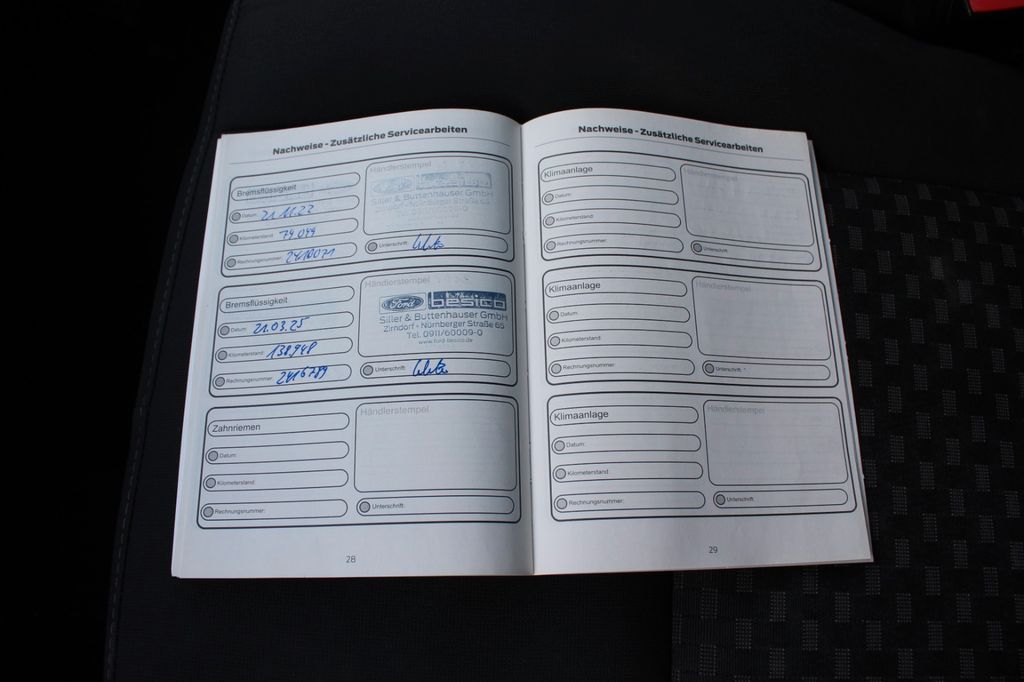 Nachweise - Zusätzliche Servicearbeiten
Bremsflüssigkeit
Datum: 21.11.22
Kilometerstand: 74 044
Rechnungsnummer: 2410071
Händlerstempel
Ford
Siller & Buttenhauser GmbH
Unterschrift:
Bremsflüssigkeit
Datum: 21.03.25
Kilometerstand: 138.948
Rechnungsnummer: 2416789
Händlerstempel
Ford besico
Siller & Buttenhauser GmbH
Zirndorf · Nürnberger Straße 65
Tel. 0911/60009-0
www.ford-besico.de
Unterschrift:
Zahnriemen
Datum:
Kilometerstand:
Rechnungsnummer:
Händlerstempel
Unterschrift:
28
Nachweise - Zusätzliche Servicearbeiten
Klimaanlage
Datum:
Kilometerstand:
Rechnungsnummer:
Händlerstempel
Unterschrift:
Klimaanlage
Datum:
Kilometerstand:
Rechnungsnummer:
Händlerstempel
Unterschrift:
Klimaanlage
Datum:
Kilometerstand:
Rechnungsnummer:
Händlerstempel
Unterschrift:
29